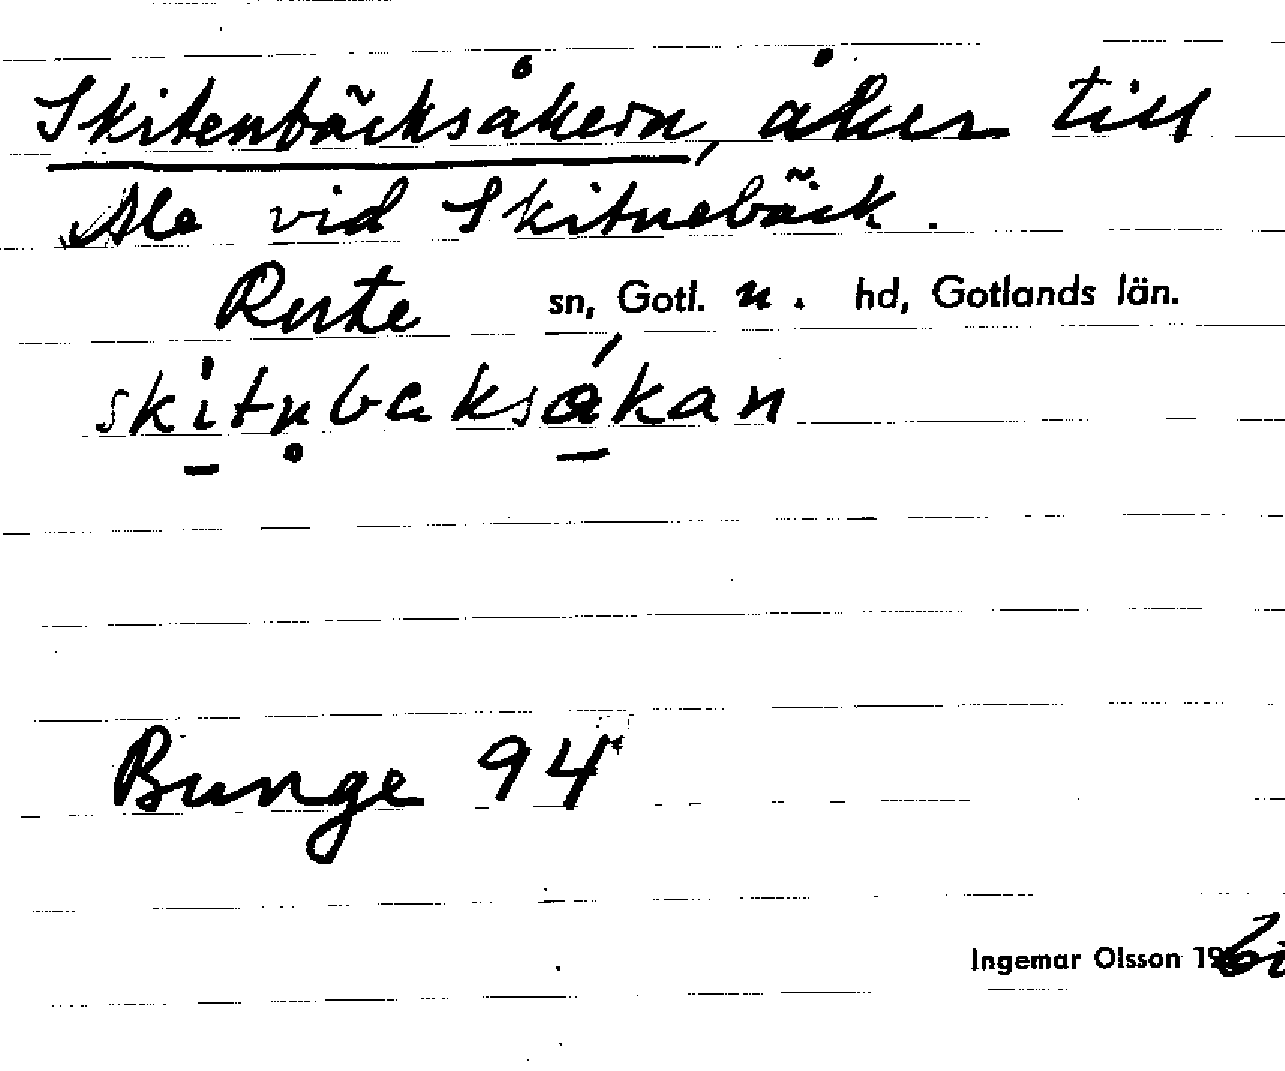 Skitenbäcksåkern, åker till
Ale vid Skitnebäck.
Rute sn, Gotl. n. hd, Gotlands län.
ski̱tn̥baksá̱kan
Bunge 94
Ingemar Olsson 19